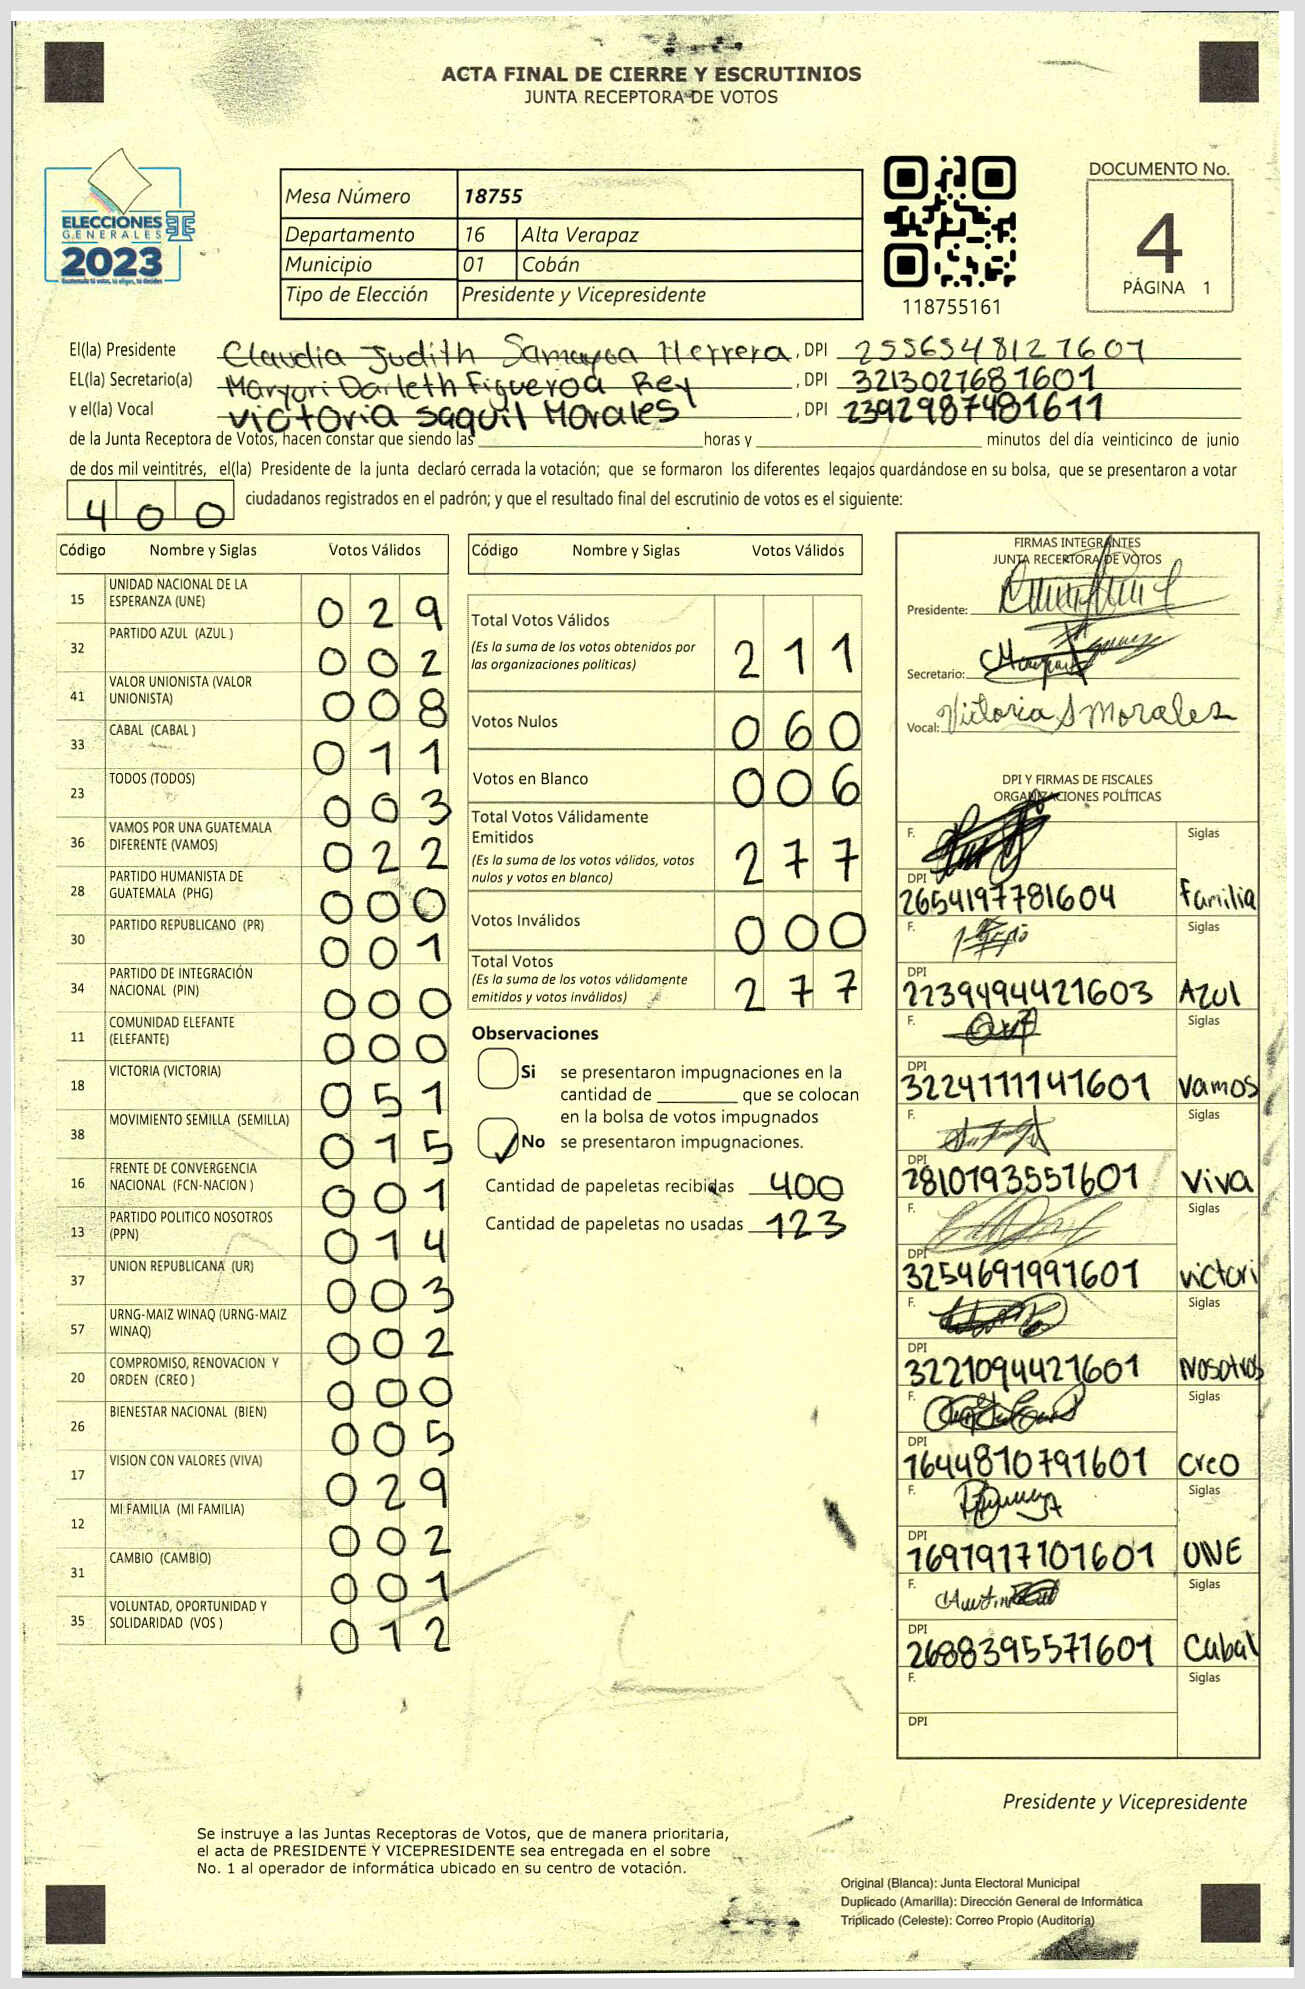 ACTA FINAL DE CIERRE Y ESCRUTINIOS
JUNTA RECEPTORA DE VOTOS
ELECCIONES
GENERALES
2023
Mesa Número 18755
Departamento 16 Alta Verapaz
Municipio 01 Cobán
Tipo de Elección Presidente y Vicepresidente
118755161
DOCUMENTO No.
4
PÁGINA 1
El(la) Presidente Claudia Judith Samayoa Herrera, DPI 2556548127601
EL(la) Secretario(a) Maryori Darleth Figueroa Rey, DPI 3213027681601
y el(la) Vocal Victoria Saquil Morales, DPI 2392987481611
de la Junta Receptora de Votos, hacen constar que siendo las horas y minutos del día veinticinco de junio
de dos mil veintitrés, el(la) Presidente de la junta declaró cerrada la votación; que se formaron los diferentes legajos quardándose en su bolsa, que se presentaron a votar
400 ciudadanos registrados en el padrón; y que el resultado final del escrutinio de votos es el siguiente:
Código Nombre y Siglas Votos Válidos
15 UNIDAD NACIONAL DE LA ESPERANZA (UNE) 029
32 PARTIDO AZUL (AZUL ) 002
41 VALOR UNIONISTA (VALOR UNIONISTA) 008
33 CABAL (CABAL ) 011
23 TODOS (TODOS) 003
36 VAMOS POR UNA GUATEMALA DIFERENTE (VAMOS) 022
28 PARTIDO HUMANISTA DE GUATEMALA (PHG) 000
30 PARTIDO REPUBLICANO (PR) 001
34 PARTIDO DE INTEGRACIÓN NACIONAL (PIN) 000
11 COMUNIDAD ELEFANTE (ELEFANTE) 000
18 VICTORIA (VICTORIA) 051
38 MOVIMIENTO SEMILLA (SEMILLA) 015
16 FRENTE DE CONVERGENCIA NACIONAL (FCN-NACION ) 001
13 PARTIDO POLITICO NOSOTROS (PPN) 014
37 UNION REPUBLICANA (UR) 003
57 URNG-MAIZ WINAQ (URNG-MAIZ WINAQ) 002
20 COMPROMISO, RENOVACION Y ORDEN (CREO ) 000
26 BIENESTAR NACIONAL (BIEN) 005
17 VISION CON VALORES (VIVA) 029
12 MI FAMILIA (MI FAMILIA) 002
31 CAMBIO (CAMBIO) 001
35 VOLUNTAD, OPORTUNIDAD Y SOLIDARIDAD (VOS ) 012
Código Nombre y Siglas Votos Válidos
Total Votos Válidos 211
(Es la suma de los votos obtenidos por
las organizaciones políticas)
Votos Nulos 060
Votos en Blanco 006
Total Votos Válidamente
Emitidos 277
(Es la suma de los votos válidos, votos
nulos y votos en blanco)
Votos Inválidos 000
Total Votos 277
(Es la suma de los votos válidamente
emitidos y votos inválidos)
Observaciones
Si se presentaron impugnaciones en la
cantidad de que se colocan
en la bolsa de votos impugnados
No se presentaron impugnaciones.
Cantidad de papeletas recibidas 400
Cantidad de papeletas no usadas 123
FIRMAS INTEGRANTES
JUNTA RECEPTORA DE VOTOS
Presidente:
Secretario:
Vocal: Victoria S Morales
DPI Y FIRMAS DE FISCALES
ORGANIZACIONES POLÍTICAS
F. Siglas
DPI
2654197781604 Familia
F. Siglas
DPI
2239494421603 Azul
F. Siglas
DPI
3224111141601 Vamos
F. Siglas
DPI
2810793551601 Viva
F. Siglas
DPI
3254691991601 victori
F. Siglas
DPI
3221094421601 Nosotros
F. Siglas
DPI
1644810791601 Creo
F. Siglas
DPI
1691917101601 UNE
F. Siglas
DPI
2688395571601 Cabal
F. Siglas
DPI
Presidente y Vicepresidente
Se instruye a las Juntas Receptoras de Votos, que de manera prioritaria,
el acta de PRESIDENTE Y VICEPRESIDENTE sea entregada en el sobre
No. 1 al operador de informática ubicado en su centro de votación.
Original (Blanca): Junta Electoral Municipal
Duplicado (Amarilla): Dirección General de Informática
Triplicado (Celeste): Correo Propio (Auditoría)